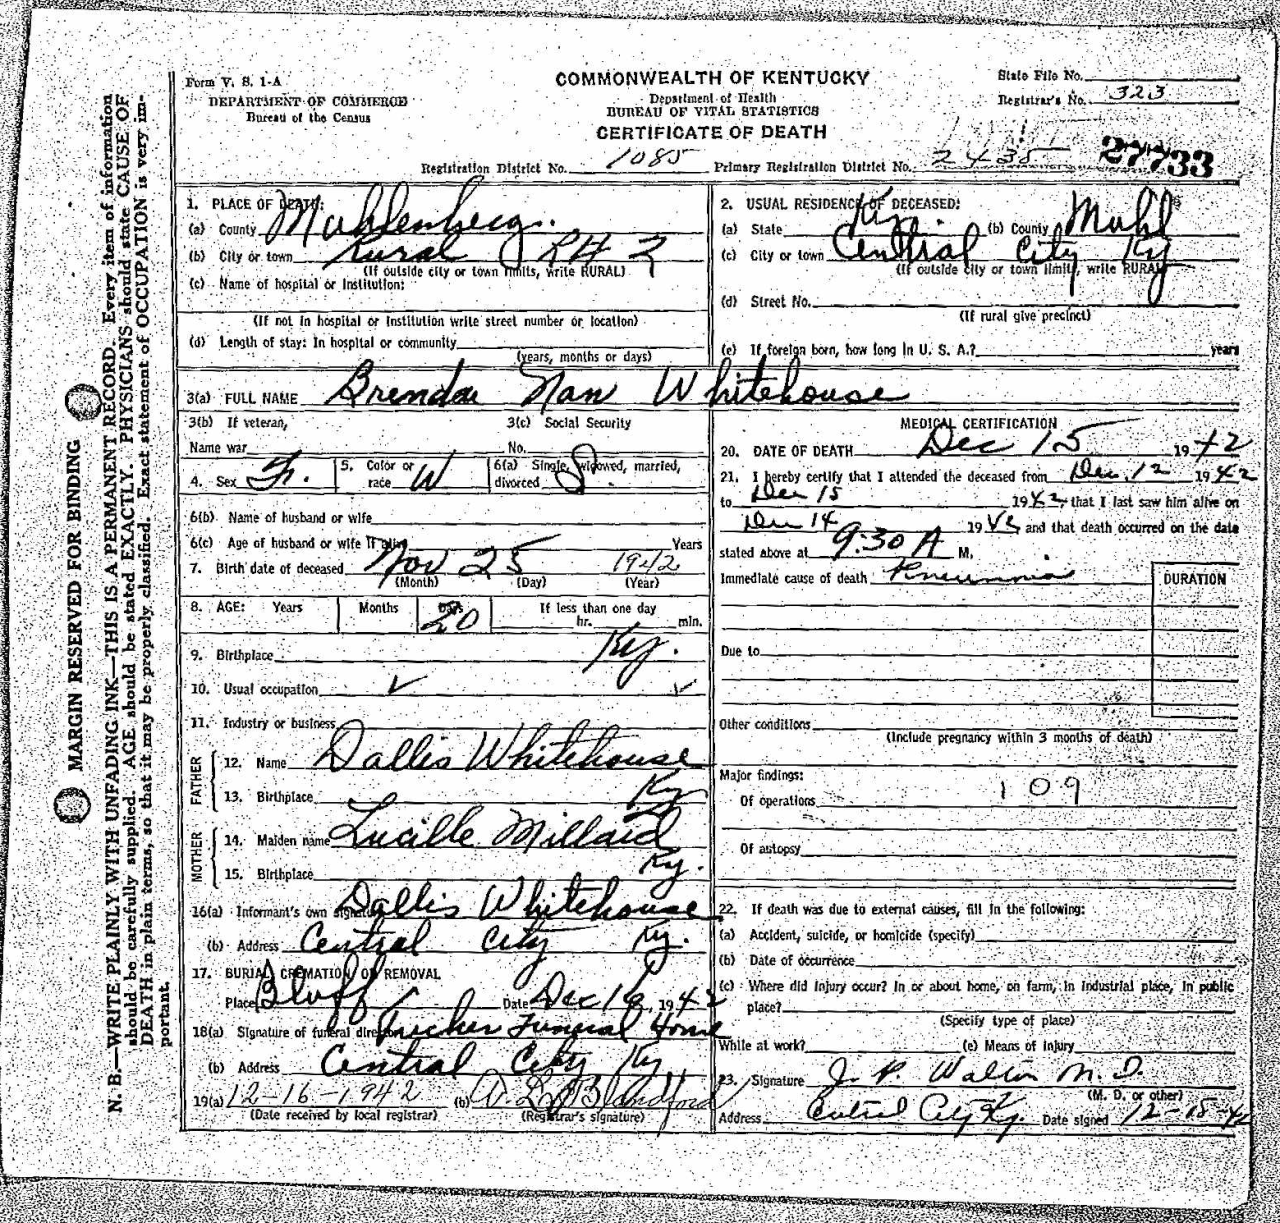 Form V. S. 1-A
DEPARTMENT OF COMMERCE
Bureau of the Census
COMMONWEALTH OF KENTUCKY
Department of Health
BUREAU OF VITAL STATISTICS
CERTIFICATE OF DEATH
State File No.
Registrar's No. 323
Registration District No. 1085 Primary Registration District No. 2435 27733
MARGIN RESERVED FOR BINDING
N. B.—WRITE PLAINLY WITH UNFADING INK—THIS IS A PERMANENT RECORD. Every item of information
should be carefully supplied. AGE should be stated EXACTLY. PHYSICIANS should state CAUSE OF
DEATH in plain terms, so that it may be properly classified. Exact statement of OCCUPATION is very im-
portant.
1. PLACE OF DEATH:
(a) County Muhlenberg.
(b) City or town Rural R#2
(If outside city or town limits, write RURAL)
(c) Name of hospital or institution:
(If not in hospital or institution write street number or location)
(d) Length of stay: In hospital or community
(years, months or days)
2. USUAL RESIDENCE OF DECEASED:
(a) State Ky. (b) County Muhl
(c) City or town Central City Ky
(If outside city or town limits, write RURAL)
(d) Street No.
(If rural give precinct)
(e) If foreign born, how long in U. S. A.? years
3(a) FULL NAME Brenda Nan Whitehouse
3(b) If veteran,
Name war
3(c) Social Security
No.
4. Sex F. 5. Color or race W 6(a) Single, widowed, married, divorced S.
6(b) Name of husband or wife
6(c) Age of husband or wife if alive Years
7. Birth date of deceased Nov 25 1942
(Month) (Day) (Year)
8. AGE: Years Months Days 20 If less than one day
hr. min.
9. Birthplace Ky.
10. Usual occupation ✓ ✓
11. Industry or business
FATHER
12. Name Dallis Whitehouse
13. Birthplace Ky
MOTHER
14. Maiden name Lucille Millard
15. Birthplace Ky.
16(a) Informant's own signature Dallis Whitehouse
(b) Address Central City Ky.
17. BURIAL CREMATION OR REMOVAL
Place Bluff Date Dec 16, 1942
18(a) Signature of funeral director Tucker Funeral Home
(b) Address Central City Ky
19(a) 12-16-1942 (b) A. L. Blandford
(Date received by local registrar) (Registrar's signature)
MEDICAL CERTIFICATION
20. DATE OF DEATH Dec 15 1942
21. I hereby certify that I attended the deceased from Dec. 12 1942
to Dec 15 1942, that I last saw him alive on
Dec 14 1942 and that death occurred on the date
stated above at 9:30 A M.
Immediate cause of death Pneumonia
DURATION
Due to
Other conditions
(Include pregnancy within 3 months of death)
Major findings:
Of operations 109
Of autopsy
22. If death was due to external causes, fill in the following:
(a) Accident, suicide, or homicide (specify)
(b) Date of occurrence
(c) Where did injury occur? In or about home, on farm, in industrial place, in public
place?
(Specify type of place)
While at work? (e) Means of injury
23. Signature J. P. Walton M.D.
(M. D. or other)
Address Central City Ky. Date signed 12-15-42